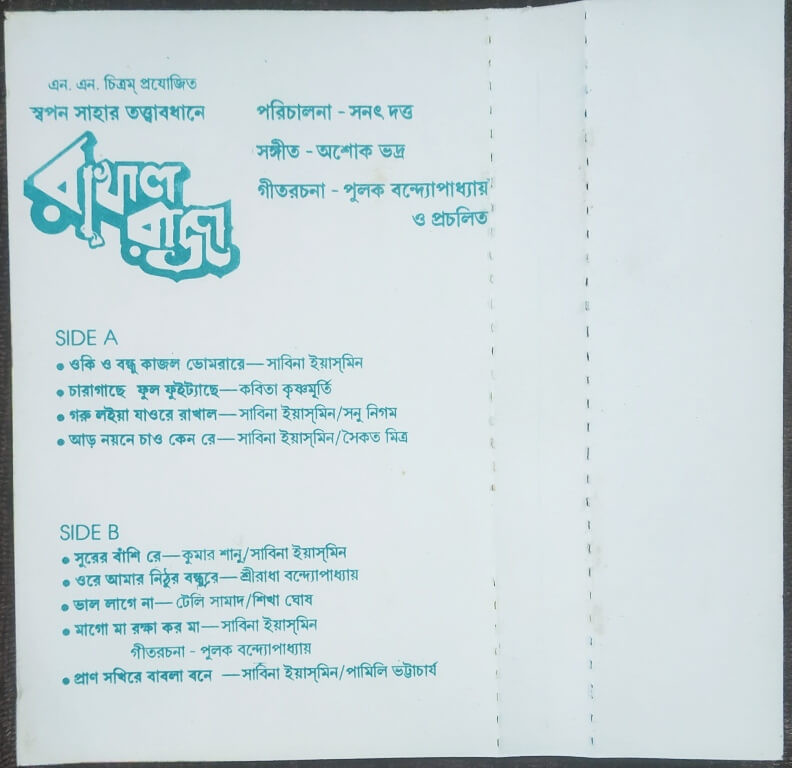 এন. এন. চিত্রম্ প্রযোজিত
স্বপন সাহার তত্ত্বাবধানে
রাখাল
রাজা
পরিচালনা - সনৎ দত্ত
সঙ্গীত - অশোক ভদ্র
গীতরচনা - পুলক বন্দ্যোপাধ্যায়
ও প্রচলিত
SIDE A
• ওকি ও বন্ধু কাজল ভোমরারে—সাবিনা ইয়াস্‌মিন
• চারাগাছে ফুল ফুইট্যাছে—কবিতা কৃষ্ণমূর্তি
• গরু লইয়া যাওরে রাখাল—সাবিনা ইয়াস্‌মিন/সনু নিগম
• আড় নয়নে চাও কেন রে—সাবিনা ইয়াস্‌মিন/সৈকত মিত্র
SIDE B
• সুরের বাঁশি রে—কুমার শানু/সাবিনা ইয়াস্‌মিন
• ওরে আমার নিঠুর বন্ধুরে—শ্রীরাধা বন্দ্যোপাধ্যায়
• ভাল লাগে না—টেলি সামাদ/শিখা ঘোষ
• মাগো মা রক্ষা কর মা—সাবিনা ইয়াস্‌মিন
গীতরচনা - পুলক বন্দ্যোপাধ্যায়
• প্রাণ সখিরে বাবলা বনে —সাবিনা ইয়াস্‌মিন/পামিলি ভট্টাচার্য